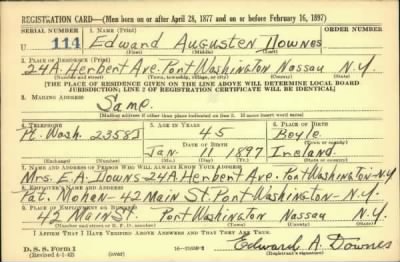 REGISTRATION CARD—(Men born on or after April 28, 1877 and on or before February 16, 1897)
SERIAL NUMBER 1. NAME (Print) ORDER NUMBER
U 114 Edward Augusten Downes
(First) (Middle) (Last)
2. PLACE OF RESIDENCE (Print)
24A. Herbert Ave. Port Washington Nassau N.Y.
(Number and street) (Town, township, village, or city) (County) (State)
[THE PLACE OF RESIDENCE GIVEN ON THE LINE ABOVE WILL DETERMINE LOCAL BOARD
JURISDICTION; LINE 2 OF REGISTRATION CERTIFICATE WILL BE IDENTICAL]
3. MAILING ADDRESS
Same.
[Mailing address if other than place indicated on line 2. If same insert word same]
4. TELEPHONE 5. AGE IN YEARS 6. PLACE OF BIRTH
45 Boyle
Pt. Wash. DATE OF BIRTH (Town or county)
Jan 11 1897 Ireland
(Exchange) (Number) (Mo.) (Day) (Yr.) (State or country)
7. NAME AND ADDRESS OF PERSON WHO WILL ALWAYS KNOW YOUR ADDRESS
Mrs. E.A. Downs-24A Herbert Ave. Port Washington-N.Y
8. EMPLOYER'S NAME AND ADDRESS
Pat. Mohen-42 Main St. Port Washington-N.Y.
9. PLACE OF EMPLOYMENT OR BUSINESS
42 Main St. Port Washington Nassau N.Y.
(Number and street or R. F. D. number) (Town) (County) (State)
I AFFIRM THAT I HAVE VERIFIED ABOVE ANSWERS AND THAT THEY ARE TRUE.
D. S. S. Form 1
(Revised 4-1-42) (over) Edward A. Downes
(Registrant's signature)